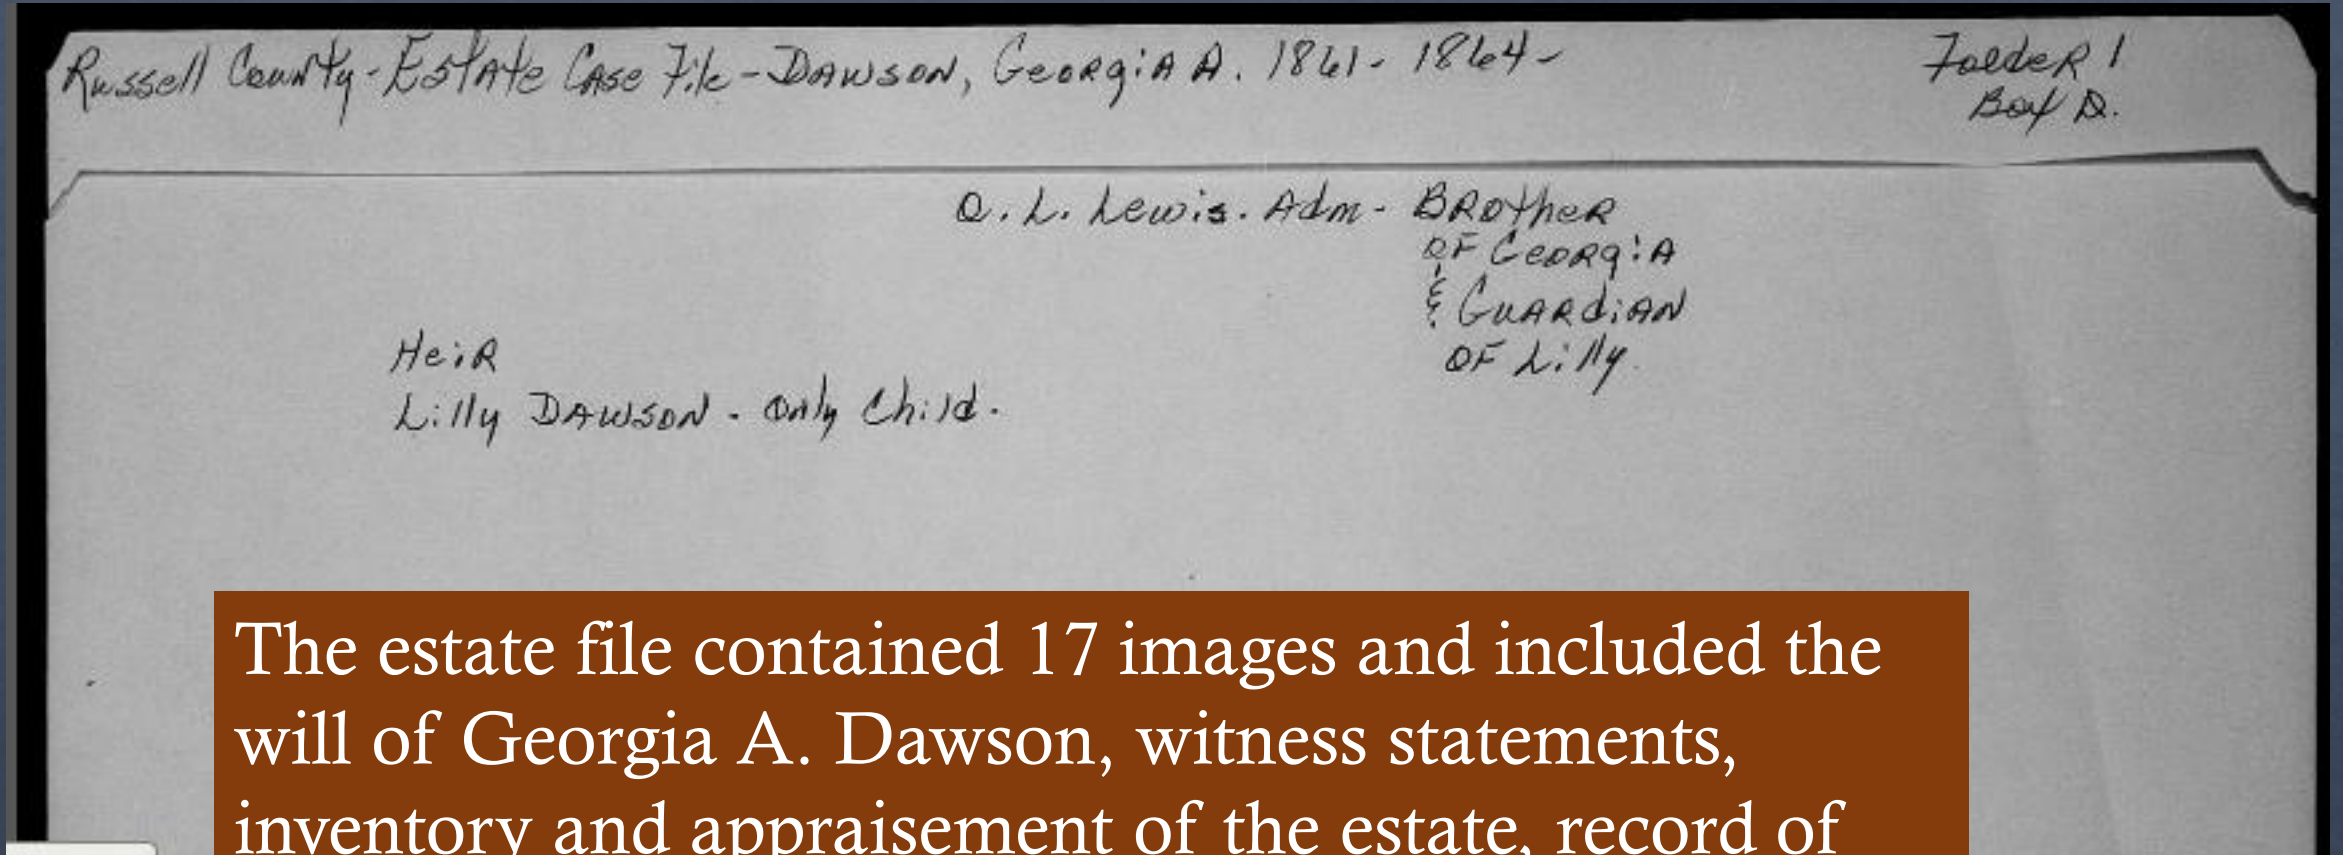 Russell County - Estate Case File - Dawson, Georgia A. 1861 - 1864 -
Folder 1
Box D.
O. L. Lewis. Adm - Brother
of Georgia
& Guardian
of Lilly.
Heir
Lilly Dawson - only Child.
The estate file contained 17 images and included the
will of Georgia A. Dawson, witness statements,
inventory and appraisement of the estate, record of